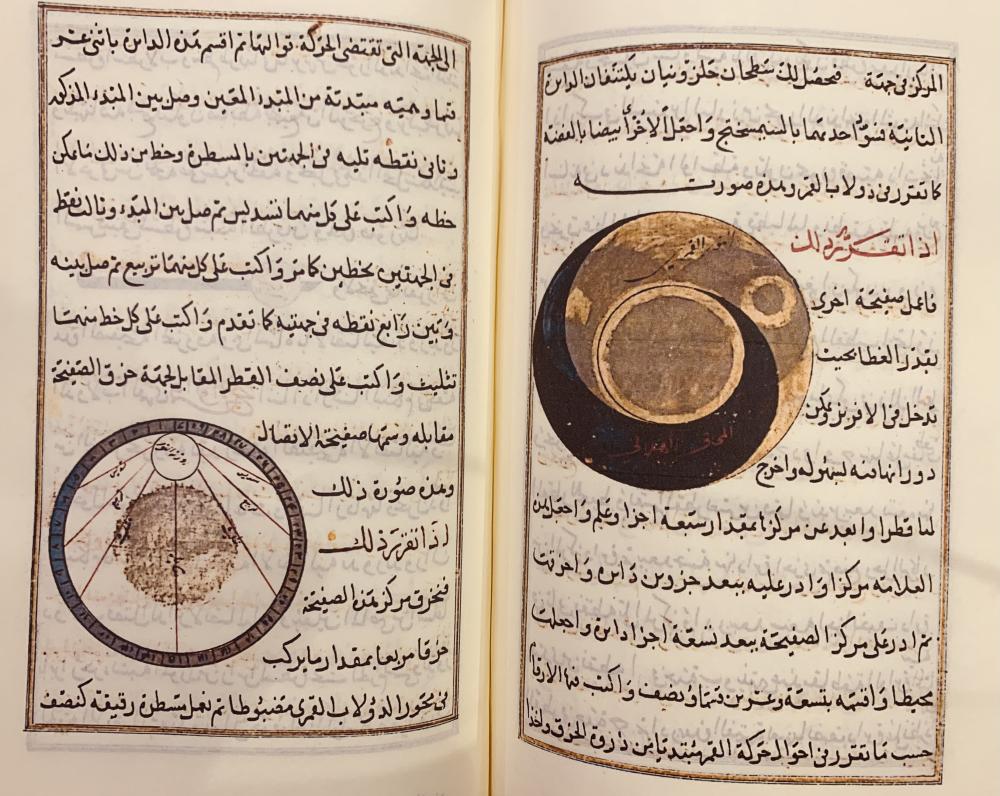 المركز في جهة فحصل لك سطحان حلزونيان يكتنفان الدايرة
الثانية فسوّد احد منهما بالسيم سختج واجعل الاخر ابيضا بالفضة
كما تقرر في دولاب القمر وهذه صورته
اذا تقرّر ذلك
فاعمل صفيحة اخرى
بقدر الغطا بحيث
تدخل في الافريز ويكون
دورانها فيه بسهوله واخرج
لها قطرا وابعد عن مركزها بمقدار سبعة اجزا وعلم واجعل من
العلامه مركزا وادر عليه ببعد جزوين دايره واخرقها
ثم ادر على مركز الصفيحة ببعد تسعة اجزا دايرة واجعلها
محيطا واقسمه بتسعة وعشرين قسما ونصف واكتب فيها الارقام
حسب ما تقرر في احوال حركة القمر مبتديا من ذروة الخرق واخذا
المحاق
الى الجهة التي تقتضي الحركة تواليها ثم اقسم هذه الدايرة باثني عشر
قسما وهميه مبتدئة من المبتدء المعين وصل بين المبتدء المذكور
وثاني نقطه تليه في الجهتين بالمسطرة وخط من ذلك ما يمكن
خطه واكتب على كل منهما تسديس ثم صل بين المبتدء وثالث نقطه
في الجهتين بخطين كما مر واكتب على كل منهما تربيع ثم صل بينه
وبين رابع نقطه في جهتيه كما تقدم واكتب على كل خط منهما
تثليث واكتب على نصف القطر المقابل لجهة خرق الصفيحة
مقابله وسمها صفيحة الاتصال
وهذه صورة ذلك
اذا تقرر ذلك
فتخرق مركز هذه الصفيحة
خرقا مربعا بمقدار ما يركب
في محور الدولاب القمري مضبوطا ثم نعمل مسطرة رقيقه كنصف